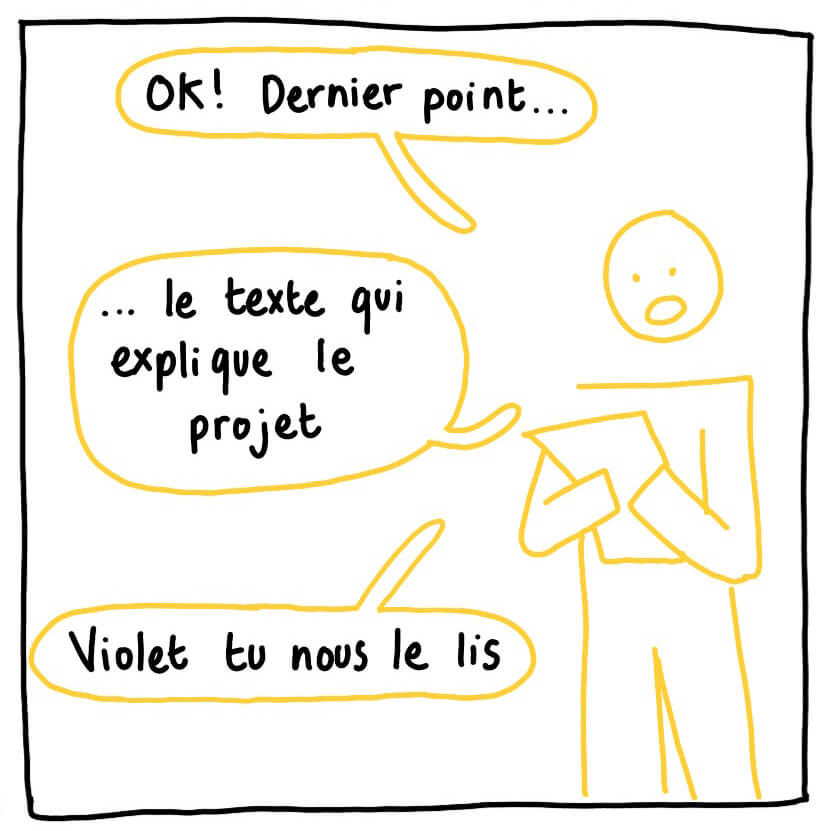 OK! Dernier point...
... le texte qui
explique le
projet
Violet tu nous le lis